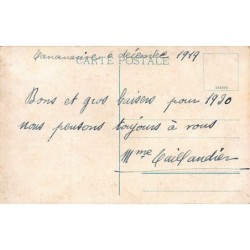 décembre 1919
CARTE POSTALE
Bons et gros baisers pour 1930
nous pensons toujours à vous
Mme Taillandier